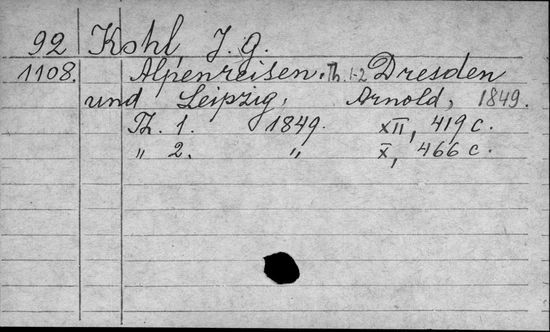 92 Kohl, J. G.
1108. Alpenreisen. Th. 1-2 Dresden
und Leipzig, Arnold, 1849.
Th. 1. 1849. XII, 419 c.
„ 2. „ X, 466 c.